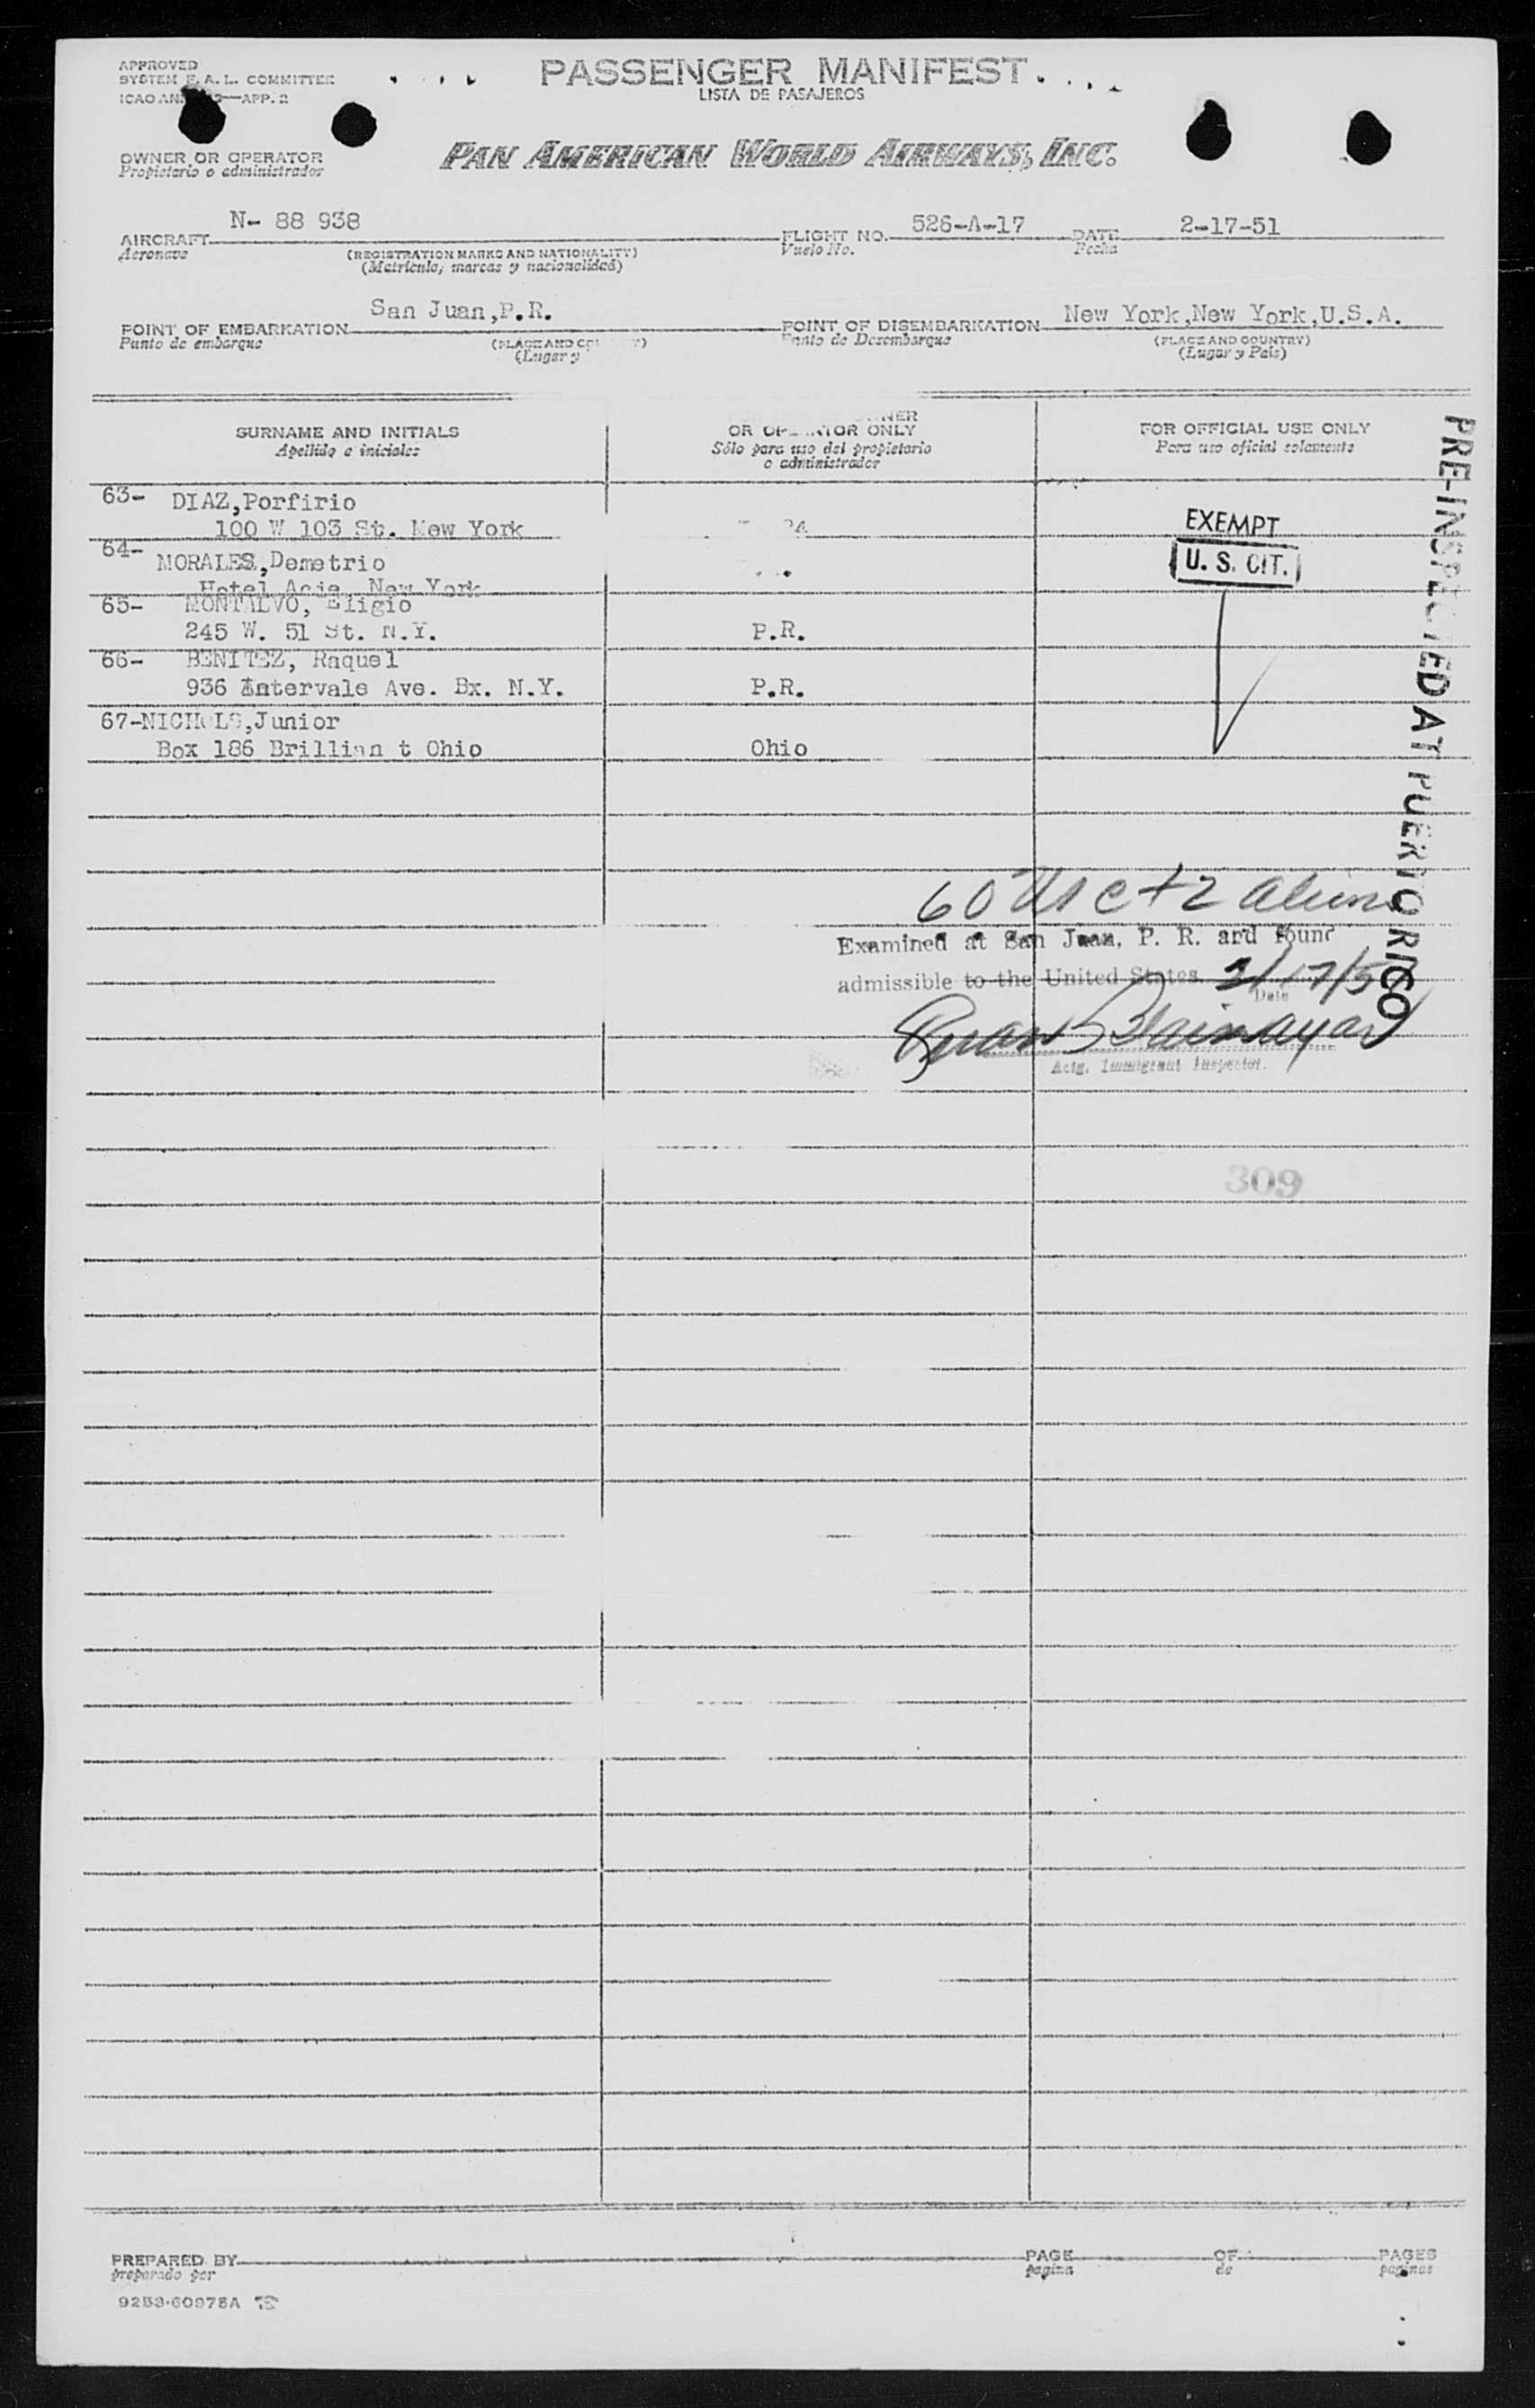 APPROVED
SYSTEM F. A. L. COMMITTEE
APP. 2
PASSENGER MANIFEST
LISTA DE PASAJEROS
OWNER OR OPERATOR
Propietario o administrador
PAN AMERICAN WORLD AIRWAYS, INC.
AIRCRAFT N- 88 938 FLIGHT NO. 526-A-17 DATE 2-17-51
Aeronave (REGISTRATION MARKS AND NATIONALITY) Vuelo No. Fecha
(Matrícula, marcas y nacionalidad)
POINT OF EMBARKATION San Juan,P.R. POINT OF DISEMBARKATION New York,New York,U.S.A.
Punto de embarque (PLACE AND Punto de Desembarque (PLACE AND COUNTRY)
(Lugar y (Lugar y País)
SURNAME AND INITIALS
Apellido e iniciales
OR ONLY
Sólo para uso del propietario
o administrador
FOR OFFICIAL USE ONLY
Para uso oficial solamente
63- DIAZ,Porfirio
100 W 103 St. New York
64- MORALES,Demetrio
Hotel New York
65- MONTALVO, Eligio
245 W. 51 St. N.Y. P.R.
66- BENITEZ, Raquel
936 Intervale Ave. Bx. N.Y. P.R.
67-NICHOLS,Junior
Box 186 Brillian t Ohio Ohio
EXEMPT
U. S. CIT.
PRE-INSPECTED AT PUERTO RICO
60 USC + 2 aliens
Examined at San Juan, P. R. and found
admissible to the United States 2/17/51
Date
Actg. Immigrant Inspector.
309
PREPARED BY PAGE OF PAGES
preparado por pagina de paginas